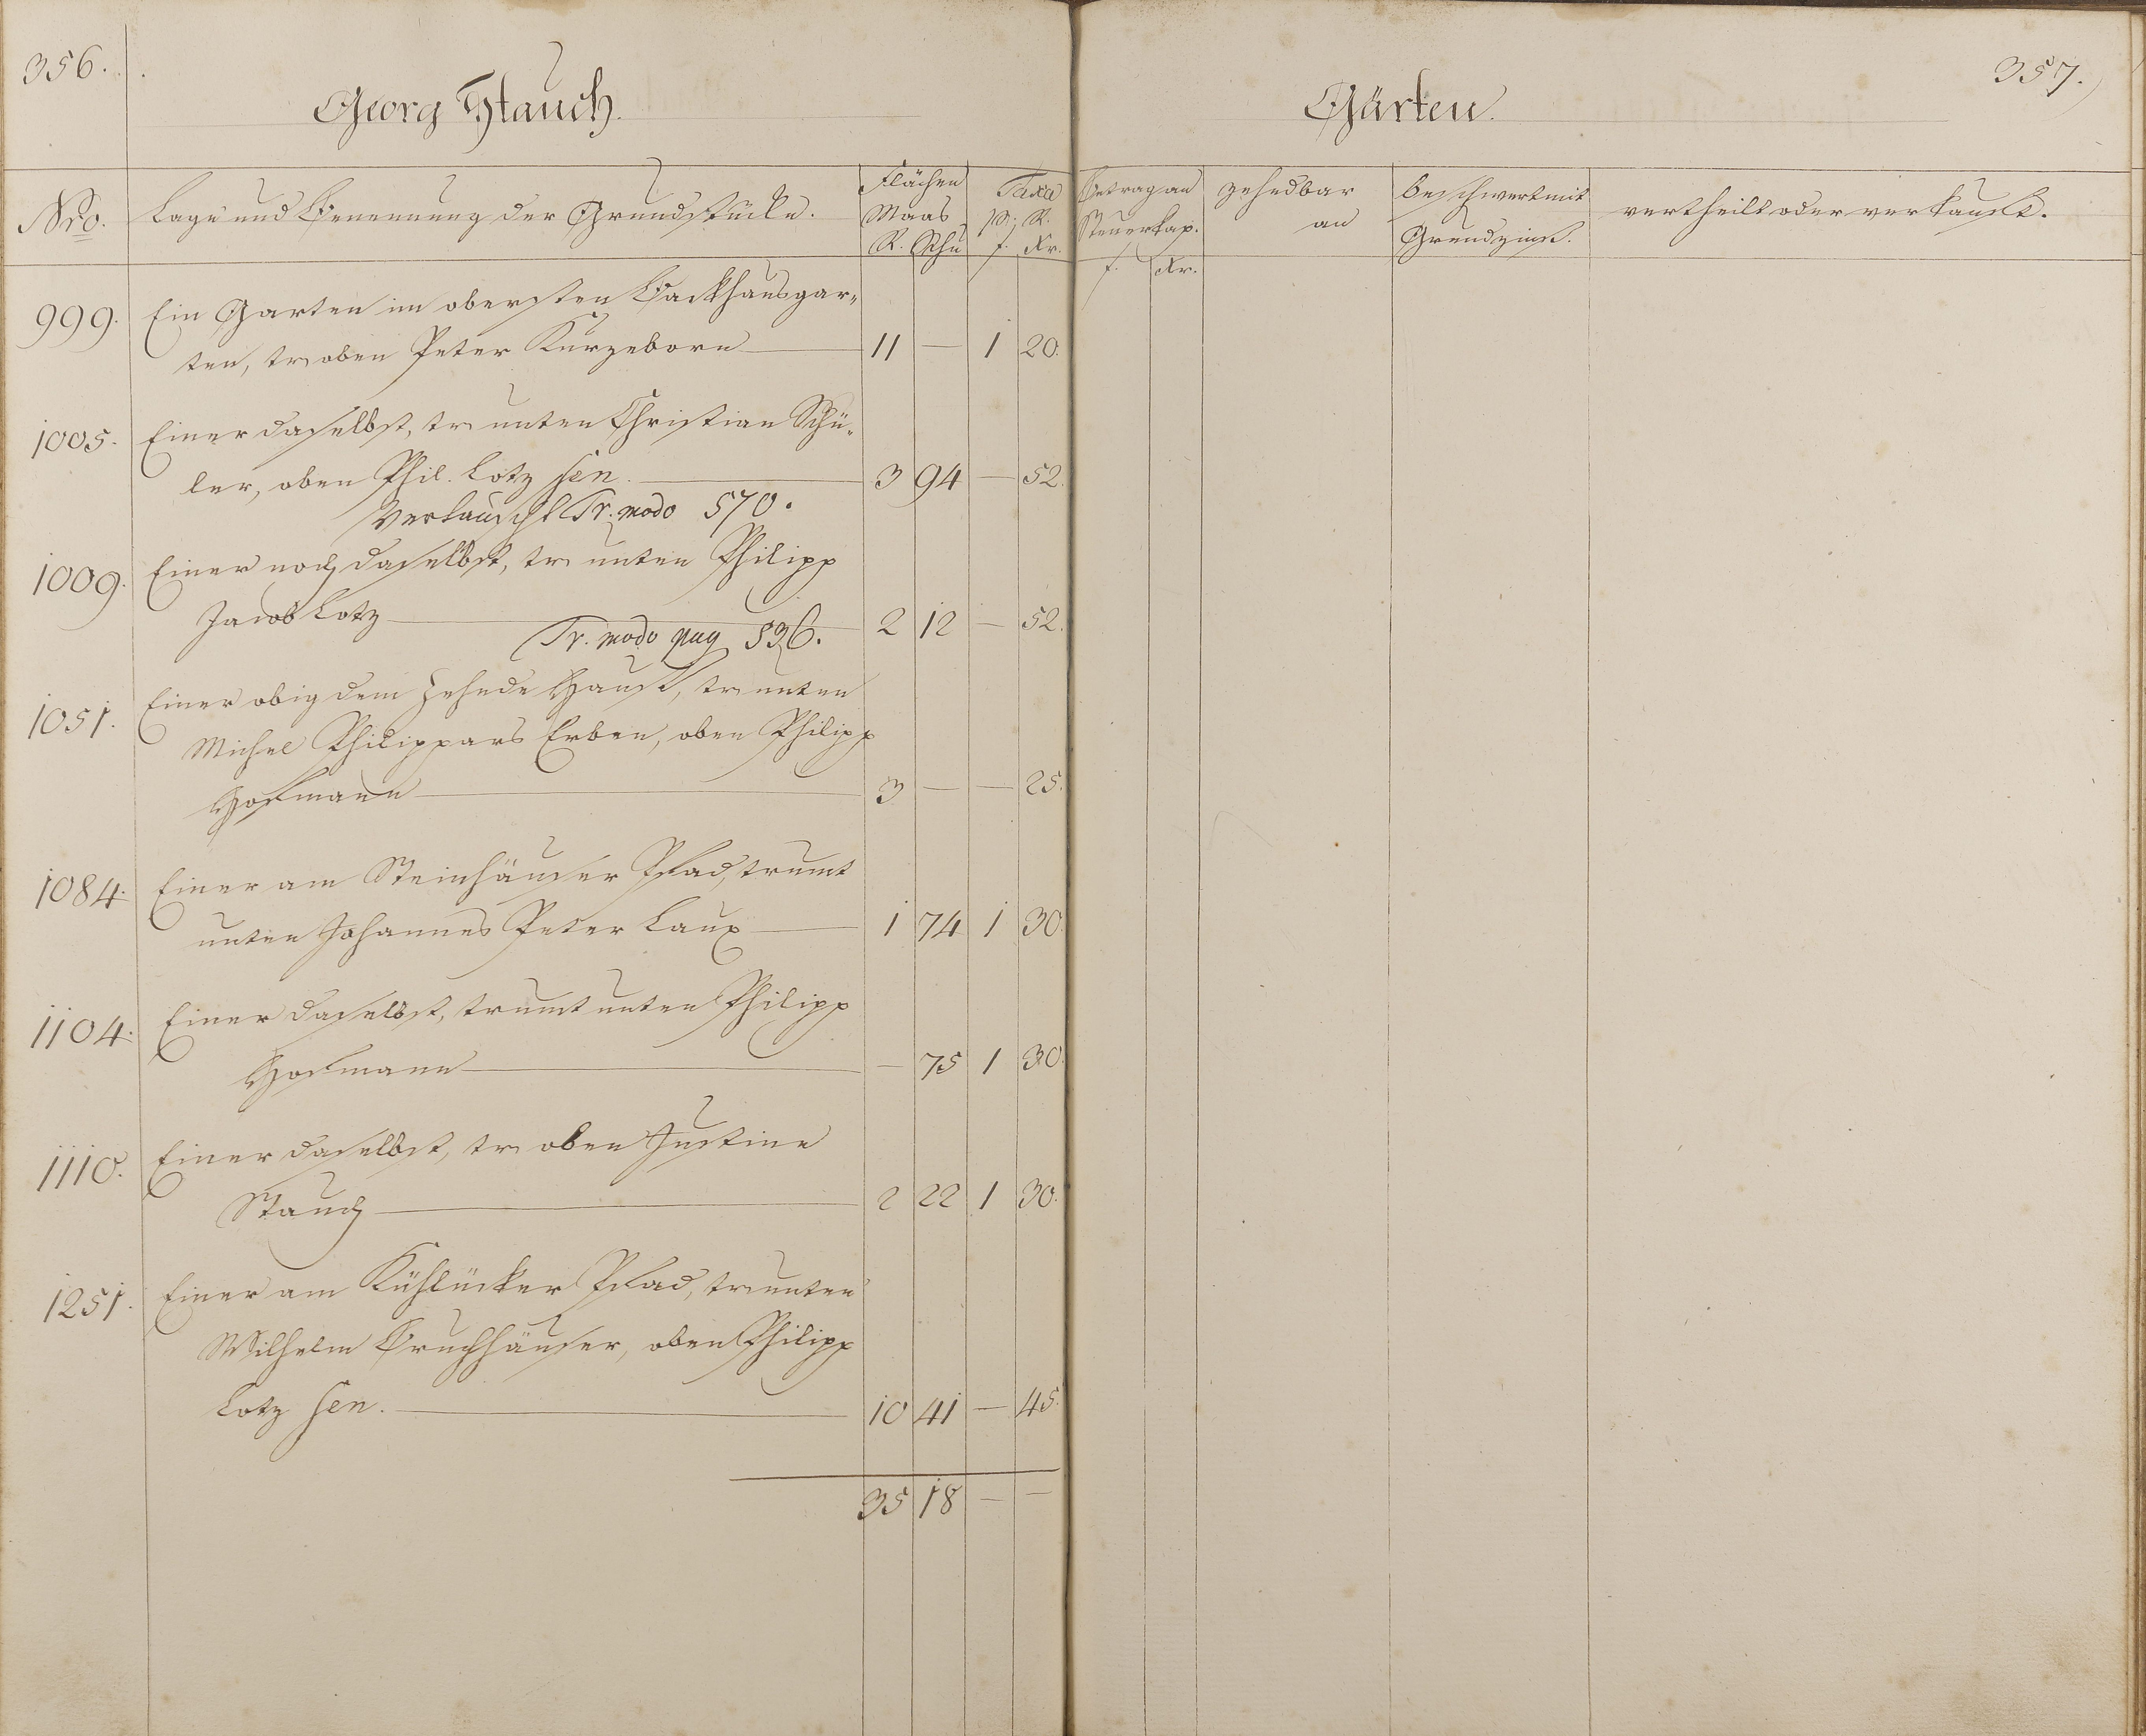 356.
Georg Stauch.
Nro.
Lage und Benennung der Grundstücke.
Flächen
Maas
R. Schu
Taxa
p. R.
f. Kr.
999. Ein Garten im obersten Backhausgar-
ten, tr. oben Peter Kurzeborn 11 — 1 20.
1005. Einer daselbst, tr. unten Christian Schü-
ler, oben Phil. Lotz sen. 3 94 — 52.
Vertauscht Tr. modo 570.
1009. Einer noch daselbst, tr. unten Philipp
Jacob Lotz 2 12 — 52.
Tr. modo pag 536.
1051. Einer obig dem Zehnde Hauß, tr. unten
Michel Philippars Erben, oben Philipp
Hofmann 3 — — 25.
1084. Einer am Steinhäuser Pfad, trumt
unten Johannes Peter Laux 1 74 1 30.
1104. Einer daselbst, trumt unten Philipp
Hofmann — 75 1 30.
1110. Einer daselbst, tr. oben Justine
Stauch 2 22 1 30.
1251. Einer am Kühlücker Pfad, tr. unten
Wilhelm Bruchhäuser, oben Philipp
Lotz sen. 10 41 — 45.
35 18 — —
357.
Gärten.
Betrag an
Steuerkap.
f. Kr.
zehndbar
an
beschwert mit
Grundzins.
vertheilt oder verkauft.